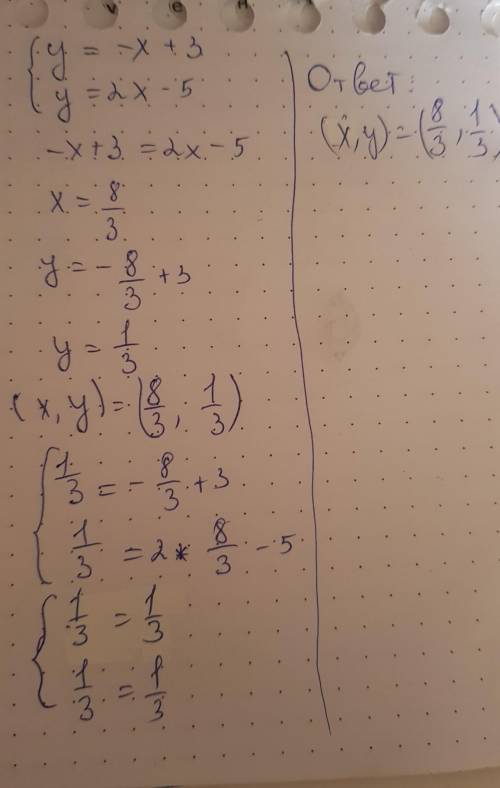 { y = -x + 3
y = 2x - 5
-x+3 = 2x - 5
x = 8/3
y = - 8/3 + 3
y = 1/3
(x, y) = (8/3, 1/3)
{ 1/3 = - 8/3 + 3
1/3 = 2 * 8/3 - 5
{ 1/3 = 1/3
1/3 = 1/3
Ответ:
(x, y) = (8/3, 1/3)